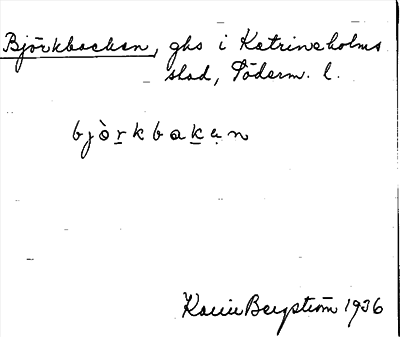 Björkbacken, ghs i Katrineholms
stad, Söderm. l.
bjò̀rkbakạn
Karin Bergström 1936